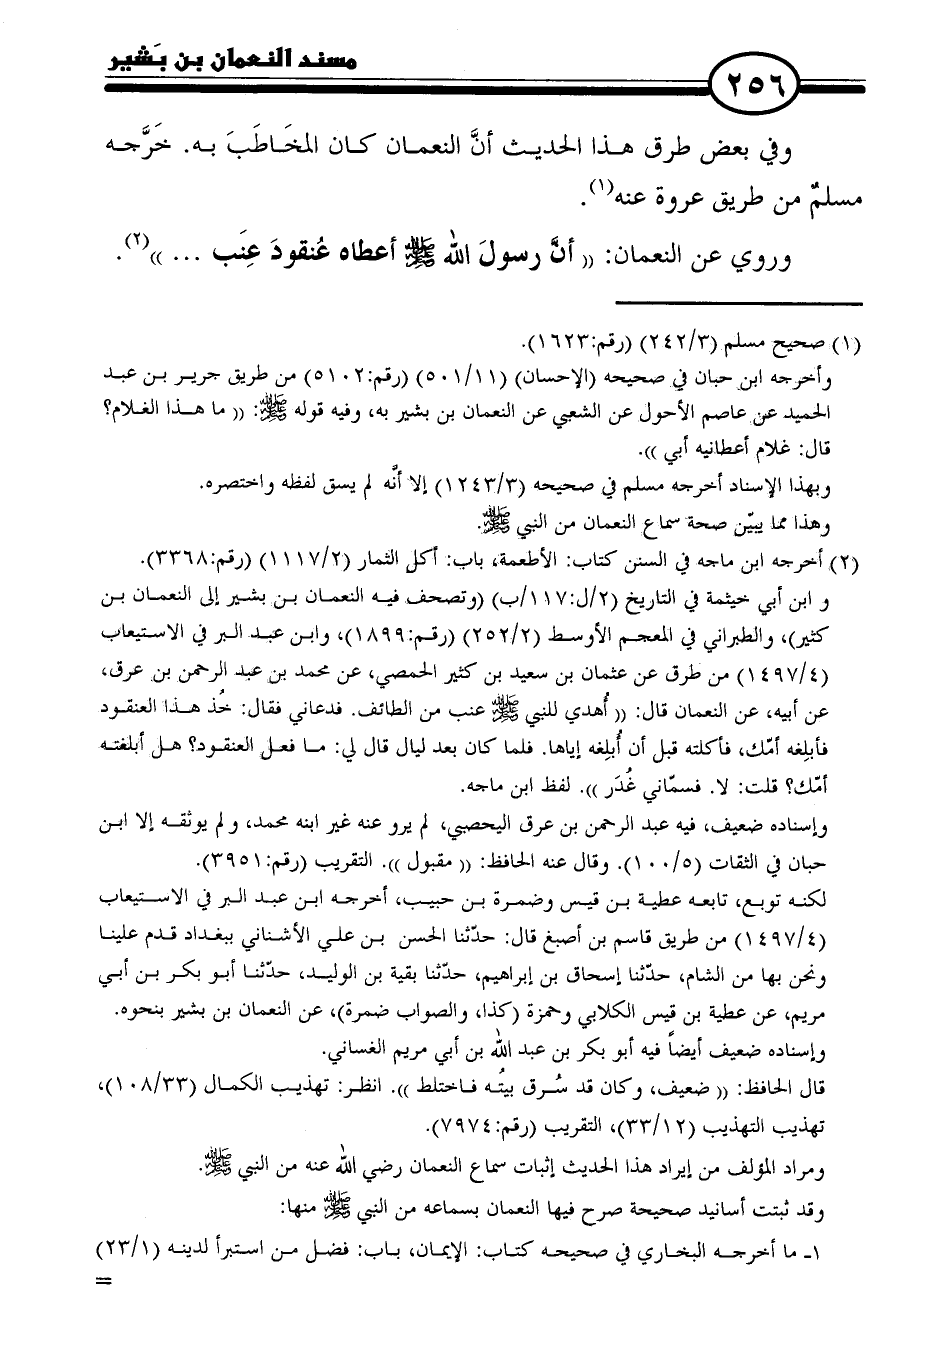 مسند النعمان بن بَشير
٢٥٦
وفي بعض طرق هذا الحديث أنَّ النعمان كان المخَاطَبَ به. خَرَّجه
مسلمٌ من طريق عروة عنه(١).
وروي عن النعمان: (( أنَّ رسولَ الله ﷺ أعطاه عُنقودَ عِنَب ... ))(٢).
(١) صحيح مسلم (٢٤٢/٣) (رقم:١٦٢٣).
وأخرجه ابن حبان في صحيحه (الإحسان) (٥٠١/١١) (رقم:٥١٠٢) من طريق جرير بن عبد
الحميد عن عاصم الأحول عن الشعبي عن النعمان بن بشير به، وفيه قوله ﷺ: (( ما هذا الغلام؟
قال: غلام أعطانيه أبي )).
وبهذا الإسناد أخرجه مسلم في صحيحه (١٢٤٣/٣) إلا أنَّه لم يسق لفظه واختصره.
وهذا مما يبيّن صحة سماع النعمان من النبي ﷺ.
(٢) أخرجه ابن ماجه في السنن كتاب: الأطعمة، باب: أكل الثمار (١١١٧/٢) (رقم:٣٣٦٨).
و ابن أبي خيثمة في التاريخ (٢/ل:١١٧/ب) (وتصحف فيه النعمان بن بشير إلى النعمان بن
كثير)، والطبراني في المعجم الأوسط (٢٥٢/٢) (رقم:١٨٩٩)، وابن عبد البر في الاستيعاب
(١٤٩٧/٤) من طرق عن عثمان بن سعيد بن كثير الحمصي، عن محمد بن عبد الرحمن بن عرق،
عن أبيه، عن النعمان قال: (( أُهدي للنبي ﷺ عنب من الطائف. فدعاني فقال: خُذ هذا العنقود
فأبلِغه أمّك، فأكلته قبل أن أُبلِغه إياها. فلما كان بعد ليال قال لي: ما فعل العنقود؟ هل أبلغته
أمّك؟ قلت: لا. فسمّاني غُدَر )). لفظ ابن ماجه.
وإسناده ضعيف، فيه عبد الرحمن بن عرق اليحصبي، لم يرو عنه غير ابنه محمد، ولم يوثقه إلا ابن
حبان في الثقات (١٠٠/٥). وقال عنه الحافظ: (( مقبول )). التقريب (رقم:٣٩٥١).
لكنه توبع، تابعه عطية بن قيس وضمرة بن حبيب، أخرجه ابن عبد البر في الاستيعاب
(١٤٩٧/٤) من طريق قاسم بن أصبغ قال: حدّثنا الحسن بن علي الأشناني ببغداد قدم علينا
ونحن بها من الشام، حدّثنا إسحاق بن إبراهيم، حدّثنا بقية بن الوليد، حدّثنا أبو بكر بن أبي
مريم، عن عطية بن قيس الكلابي وحمزة (كذا، والصواب ضمرة)، عن النعمان بن بشير بنحوه.
وإسناده ضعيف أيضاً فيه أبو بكر بن عبد الله بن أبي مريم الغساني.
قال الحافظ: (( ضعيف، وكان قد سُرق بيتُه فاختلط )). انظر: تهذيب الكمال (١٠٨/٣٣)،
تهذيب التهذيب (٣٣/١٢)، التقريب (رقم:٧٩٧٤).
ومراد المؤلف من إيراد هذا الحديث إثبات سماع النعمان رضي الله عنه من النبي ﷺ.
وقد ثبتت أسانيد صحيحة صرح فيها النعمان بسماعه من النبي ﷺ منها:
١ـ ما أخرجه البخاري في صحيحه كتاب: الإيمان، باب: فضل من استبرأ لدينه (٢٣/١)
=